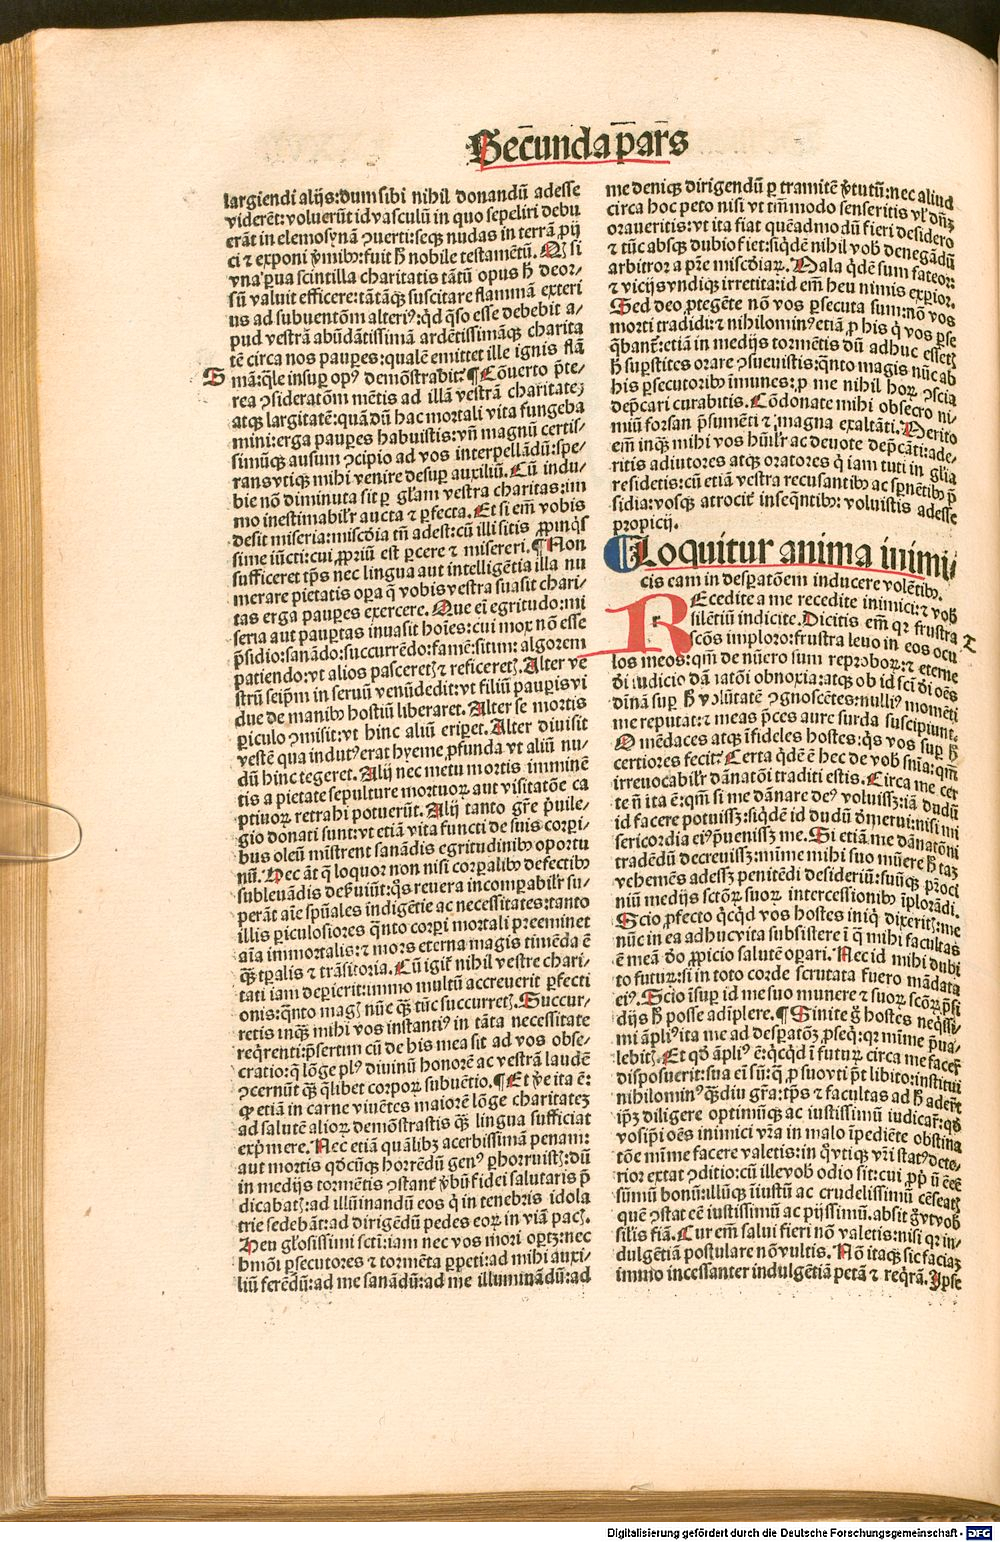 Secũnda pars
largiendi alijs: dum sibi nihil donandũ adesse
viderẽt: voluerũt id vasculũ in quo sepeliri debu
erãt in elemosynã ꝯuerti: seqꝫ nudas in terrã ꝓij
ci ⁊ exponi ṽmibꝰ: fuit hͦ nobile testamẽtũ. Qͥ si
vna ꝑua scintilla charitatis tãtũ opus hͦ deor-
sũ valuit efficere: tãtãqꝫ suscitare flammã exteri
us ad subuentõm alteriꝰ: qͥd qͣso esse debebit a-
pud vestrã abũdãtissimã ardẽtissimãqꝫ charita
tẽ circa nos pauꝑes: qualẽ emittet ille ignis flã
S
mã: qͣle insuꝑ opꝰ demõstrabit? ¶ Cõuerto p̃te-
rea ꝯsideratõm mẽtis ad illã vestrã charitateꝫ
atqꝫ largitatẽ: quã dũ hac mortali vita fungeba
mini: erga pauꝑes habuistis: vñ magnũ certis-
simũqꝫ ausum ꝯcipio ad vos interpellãdũ: spe-
rans vtiqꝫ mihi venire desuꝑ auxiliũ. Cũ indu-
bie nõ diminuta sit ꝑ gl̃am vestra charitas: im
mo inestimabilr̃ aucta ⁊ ꝑfecta. Et si em̃ vobis
desit miseria: misc̃dia tñ adest: cũ illi sitis ꝓpinqͥs
sime iũcti: cui ꝓpriũ est ꝑcere ⁊ misereri. ¶ Non
sufficeret tp̃s nec lingua aut intelligẽtia illa nu
merare pietatis oꝑa q̃ vobis vestra suasit chari-
tas erga pauꝑes exercere. Que em̃ egritudo: mi
seria aut pauꝑtas inuasit hoĩes: cui mox nõ esse
p̃sidio: sanãdo: succurrẽdo: famẽ: sitim: algorem
patiendo: vt alios pasceretꝭ ⁊ reficeretꝭ. Alter ve
strũ seip̃m in seruũ venũdedit: vt filiũ pauꝑis vi
due de manibꝰ hostiũ liberaret. Alter se mortis
ꝑiculo ꝯmisit: vt hinc aliũ eriꝑet. Alter diuisit
vestẽ qua indutꝰ erat hyeme ꝓfunda vt aliũ nu-
dũ hinc tegeret. Alij nec metu mortis imminẽ
tis a pietate sepulture mortuoꝝ aut visitatõe ca
ptiuoꝝ retrahi potuerũt. Alij tanto gr̃e p̃uile-
gio donati sunt: vt etiã vita functi de suis corꝑi-
bus oleũ mĩstrent sanãdis egritudinibꝰ oportu
nũ. Hec ãt q̃ loquor non nisi corꝑalibꝰ defectibꝰ
subleuãdis deẞuiũt: qͥs reuera incomꝑabilr̃ su-
perãt aĩe spũales indigẽtie ac necessitates: tanto
illis ꝑiculosiores qͣnto corꝑi mortali preeminet
aĩa immortalis: ⁊ mors eterna magis timẽda ẽ
qͣꝫ tꝑalis ⁊ trãsitoria. Cũ igit̃ nihil vestre chari-
tati iam deꝑierit: immo multũ accreuerit ꝑfecti
onis: qͣnto magꝭ nũc qͣꝫ tũc succurretꝭ. Succur-
retis inqꝫ mihi vos instantiꝰ in tãta necessitate
reqͥrenti: p̃sertim cũ de his mea sit ad vos obse-
cratio: q̃ lõge plꝰ diuinũ honorẽ ac vestrã laudẽ
ꝯcernũt qͣꝫ qͣlibet corpoꝝ subuẽtio. ¶ Et ṽe ita ẽ:
qꝛ etiã in carne viuẽtes maiorẽ lõge charitateꝫ
ad salutẽ alioꝝ demõstrastis qͣꝫ lingua sufficiat
exp̃mere. Nec etiã quãlibꝫ acerbissimã penam:
aut mortis qͦdcũqꝫ horrẽdũ genꝰ ꝑhorruistꝭ: dũ
in medijs tormẽtis ꝯstant̃ ṽbũ fidei salutaris p̃
dicabatꝭ: ad illũinandũ eos q̃ in tenebris idola
trie sedebãt: ad dirigẽdũ pedes eoꝝ in viã pacꝭ.
Heu gl̃osissimi sctĩ: iam nec vos mori oꝑtꝫ: nec
hmõi ꝑsecutores ⁊ tormẽta ꝑpeti: ad mihi auxi-
liũ ferẽdũ: ad me sanãdũ: ad me illuminãdũ: ad
me deniqꝫ dirigendũ ꝑ tramitẽ ṽtutũ: nec aliud
circa hoc peto nisi vt tm̃modo senseritis vl̃ dñꝫ
oraueritis: vt ita fiat quẽadmodũ fieri desidero
⁊ tũc absqꝫ dubio fiet: siqͥdẽ nihil vob̃ denegãdũ
arbitror a pr̃e misc̃diaꝝ. Mala qͥdẽ sum fateor:
⁊ vicijs vndiqꝫ irretita: id em̃ heu nimis exꝑior.
Sed deo ꝓtegẽte nõ vos ꝑsecuta sum: nõ vos
morti tradidi: ⁊ nihilominꝰ etiã ꝓ his q̃ vos ꝑse
qͣbant̃: etiã in medijs tormẽtis dũ adhuc essetꝭ
hͦ suꝑstites orare ꝯsueuistis: qͣnto magis nũc ab
his ꝑsecutoribꝰ imunes: ꝓ me nihil hoꝝ ꝯscia
dep̃cari curabitis. Cõdonate mihi obsecro ni-
miũ forsan p̃sumẽti ⁊ magna exaltãti. Merito
em̃ inqꝫ mihi vos hũilr̃ ac deuote dep̃cãti: ade-
ritis adiutores atqꝫ oratores q̃ iam tuti in gl̃ia
residetis: cũ etiã vestra recusantibꝰ ac sꝑnẽtibꝰ p̃
sidia: vosqꝫ atrocit̃ inseqͣntibꝰ: voluistis adesse
propicij.
¶ Loquitur anima inimi-
cis eam in desꝑatõem inducere volẽtibꝰ.
REcedite a me recedite inimici: ⁊ vob̃
silẽtiũ indicite. Dicitis em̃ qꝛ frustra
T
scõs imploro: frustra leuo in eos ocu
los meos: qm̃ de nũero sum reproboꝝ: ⁊ eterne
dĩ iudicio dãnatõi obnoxia: atqꝫ ob id scĩ dĩ oẽs
diñã suꝑ hͦ volũtatẽ ꝯgnoscẽtes: nulliꝰ momẽti
me reputãt: ⁊ meas p̃ces aure surda suscipiunt.
O mẽdaces atqꝫ ĩfideles hostes: qͥs vos suꝑ hͦ
certiores fecit? Certa qͥdẽ ẽ hec de vob̃ snĩa: qm̃
irreuocabilr̃ dãnatõi traditi estis. Circa me cer
te ñ ita ẽ: qm̃ si me dãnare deꝰ voluissꝫ: iã dudũ
id facere potuissꝫ: siqͥdẽ id dudũ ꝓmerui: nisi mi
sericordia eiꝰ p̃uenissꝫ me. Si etiã me dãnatõni
tradẽdũ decreuissꝫ: mĩme mihi suo mũere hͦ taꝫ
vehemẽs adessꝫ penitẽdi desideriũ: suũqꝫ p̃roci
niũ medijs sctõꝝ suoꝝ intercessionibꝰ ĩplorãdi.
Scio ꝓfecto qͥcqͥd vos hostes iniqͥ dixeritꝭ: me
nũc in ea adhuc vita subsistere ĩ q̃ mihi facultas
ẽ meã dõ ꝓpicio salutẽ oꝑari. Nec id mihi dubi
to futuꝝ: si in toto corde scrutata fuero mãdata
eiꝰ. Scio ĩsuꝑ id me suo munere ⁊ suoꝝ scõꝝ p̃si
dijs hͦ posse adĩplere. ¶ Sinite g̃ hostes neqͥssi-
mi ãpliꝰ ita me ad desꝑatõꝫ ꝓseqͥ: qꝛ mĩme p̃ua-
lebitꝭ. Et qͦd ãpliꝰ ẽ: qͥcqͥd ĩ futuꝝ circa me facer̃
disposuerit: sua eĩ sũ: q̃ ꝓ suo vti p̃t libito: institui
nihilominꝰ qͣꝫdiu gr̃a: tp̃s ⁊ facultas ad hͦ aderit
ip̃ꝫ diligere optimũqꝫ ac iustissimũ iudicar̃: qͦd
vosip̃i oẽs inimici vr̃a in malo ĩpediẽte obstina
tõe mĩme facere valetis: in qͥvtiqꝫ vr̃i statꝰ dete-
rior extat ꝯditio: cũ ille vob̃ odio sit: cui ꝓp̃ ũ ẽ eẽ
sũmũ bonũ: illũqꝫ ĩiustũ ac crudelissimũ cẽseatꝭ
quẽ ꝯstat eẽ iustissimũ ac pijssimũ. absit g̃ vt vob̃
silis fiã. Cur em̃ salui fieri nõ valetis: nisi qꝛ in-
dulgẽtiã postulare nõ vultis. Nõ itaqꝫ sic faciaꝫ
immo incessanter indulgẽtiã petã ⁊ reqͥrã. Ipse
Digitalisierung gefördert durch die Deutsche Forschungsgemeinschaft - DFG